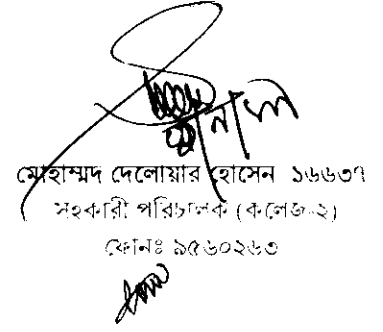 মোহাম্মদ দেলোয়ার হোসেন ১৬৬৩৭
সহকারী পরিচালক (কলেজ-২)
ফোনঃ ৯৫৬০২৬৩